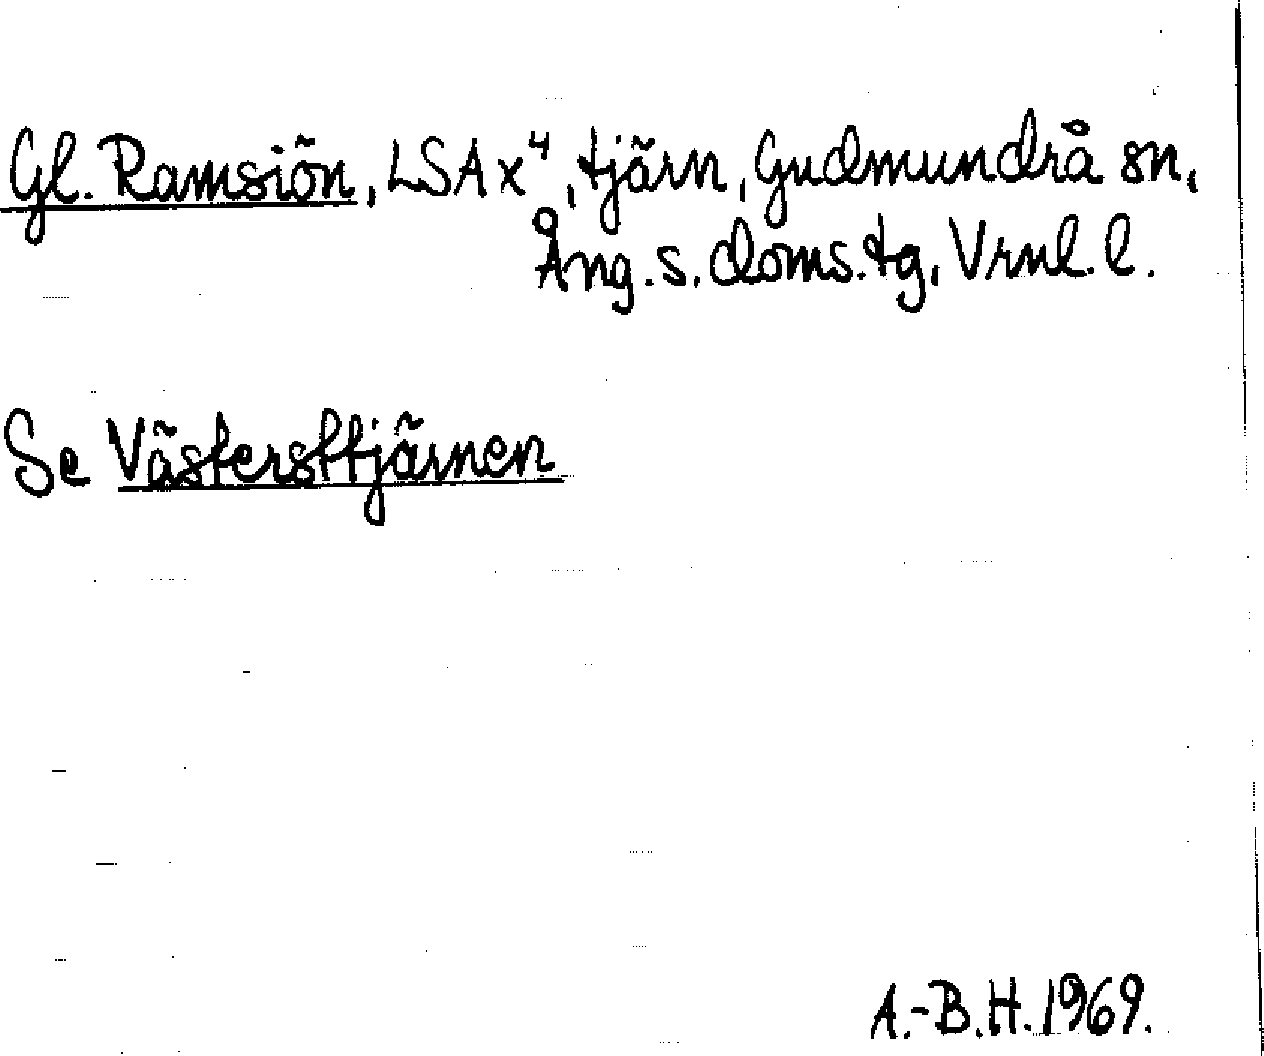 Gl. Ramsiön, LSA x⁴, tjärn, Gudmundrå sn,
Ång. s. doms. tg, Vrnl. l.
Se Västersttjärnen
A.-B.H. 1969.